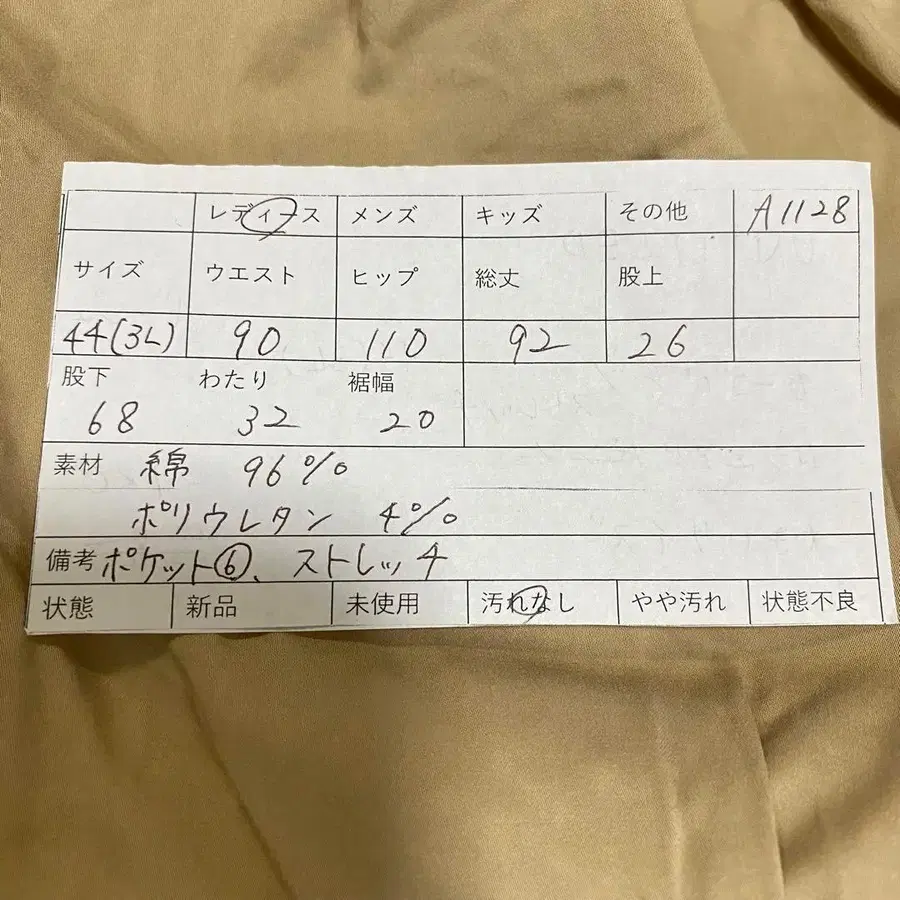 レディース メンズ キッズ その他 A1128
サイズ ウエスト ヒップ 総丈 股上
44(3L) 90 110 92 26
股下 わたり 裾幅
68 32 20
素材 綿 96%
ポリウレタン 4%
備考 ポケット⑥、ストレッチ
状態 新品 未使用 汚れなし やや汚れ 状態不良